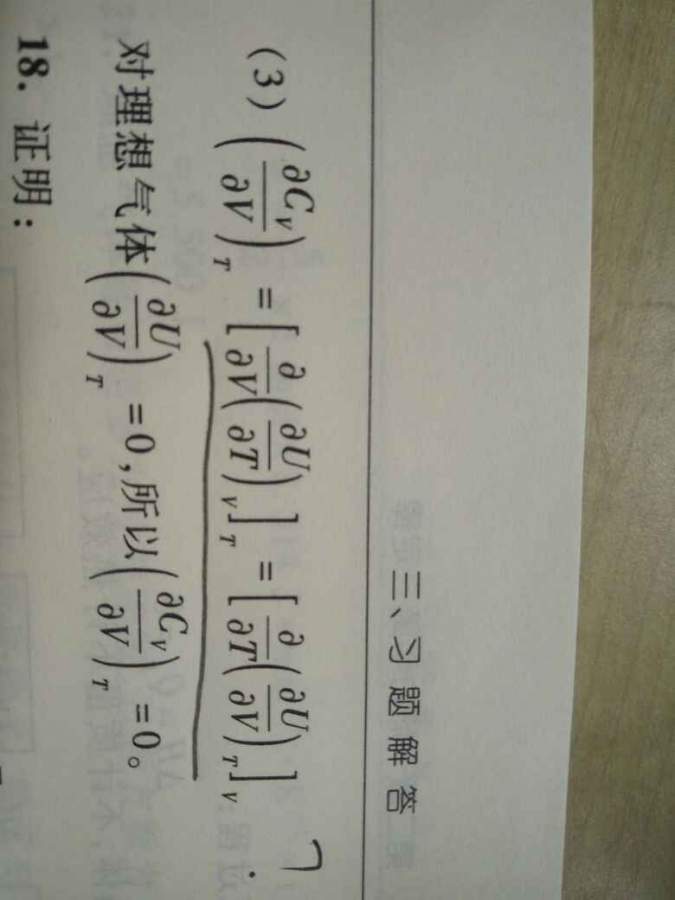 三、习题解答
(3) $\left(\frac{\partial C_V}{\partial V}\right)_T = \left[\frac{\partial}{\partial V}\left(\frac{\partial U}{\partial T}\right)_V\right]_T = \left[\frac{\partial}{\partial T}\left(\frac{\partial U}{\partial V}\right)_T\right]_V$ ?
对理想气体$\left(\frac{\partial U}{\partial V}\right)_T = 0$,所以$\left(\frac{\partial C_V}{\partial V}\right)_T = 0$。
18. 证明: